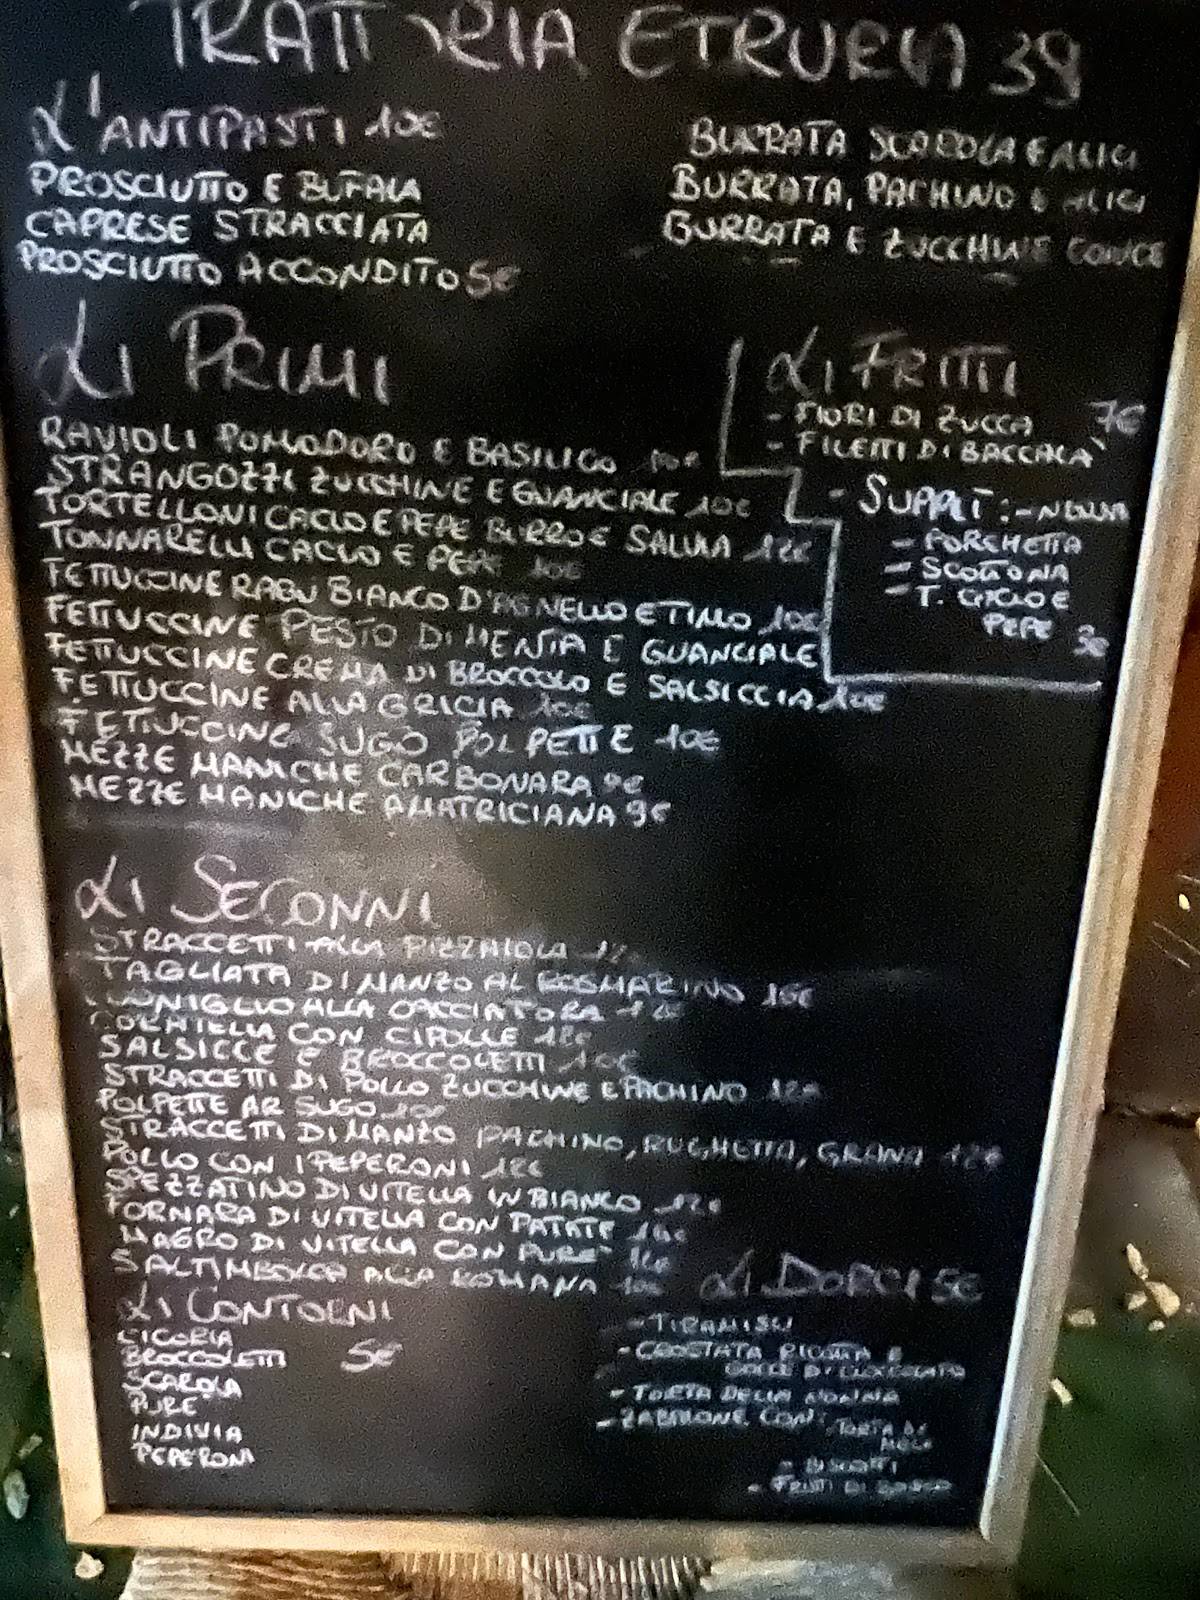 TRATTORIA ETRURIA 39
L'ANTIPASTI 10€
PROSCIUTTO E BUFALA
CAPRESE STRACCIATA
PROSCIUTTO ACCONDITO 5€
BURRATA SCAROLA E ALICI
BURRATA, PACHINO E ALICI
BURRATA E ZUCCHINE CONCE
LI PRIMI
RAVIOLI POMODORO E BASILICO 10€
STRANGOZZI ZUCCHINE E GUANCIALE 10€
TORTELLONI CACIO E PEPE BURRO E SALVIA 12€
TONNARELLI CACIO E PEPE 10€
FETTUCCINE RAGÙ BIANCO D'AGNELLO E TIMO 10€
FETTUCCINE PESTO DI MENTA E GUANCIALE
FETTUCCINE CREMA DI BROCCOLO E SALSICCIA 10€
FETTUCCINE ALLA GRICIA 10€
FETTUCCINE SUGO POLPETTE 10€
MEZZE MANICHE CARBONARA 9€
MEZZE MANICHE AMATRICIANA 9€
LI FRITTI
- FIORI DI ZUCCA 7€
- FILETTI DI BACCALÀ
- SUPPLÌ : - NDUJA
- PORCHETTA
- SCOTTONA
- T. CACIO E
PEPE 3€
LI SECONNI
STRACCETTI ALLA PIZZAIOLA
TAGLIATA DI MANZO AL ROSMARINO 16€
CONIGLIO ALLA CACCIATORA 12€
CON CIPOLLE 12€
SALSICCE E BROCCOLETTI 10€
STRACCETTI DI POLLO ZUCCHINE E PACHINO 12€
POLPETTE AR SUGO 10€
STRACCETTI DI MANZO PACHINO, RUGHETTA, GRANA 12€
POLLO CON I PEPERONI 12€
SPEZZATINO DI VITELLA IN BIANCO 12€
FORNARA DI VITELLA CON PATATE
MAGRO DI VITELLA CON PURE'
SALTIMBOCCA ALLA ROMANA 10€
LI CONTORNI
CICORIA
BROCCOLETTI 5€
SCAROLA
PURE'
INDIVIA
PEPERONI
LI DORCI 5€
- TIRAMISU
- CROSTATA RICOTTA E
GOCCE DI CIOCCOLATO
- TORTA DELLA NONNA
- ZABAIONE CON: TORTA DI
MELE
- BISCOTTI
- FRUTTI DI BOSCO